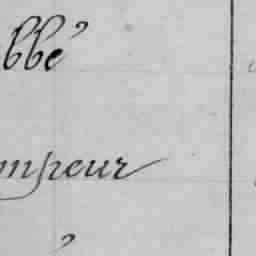 bbé
mpeur